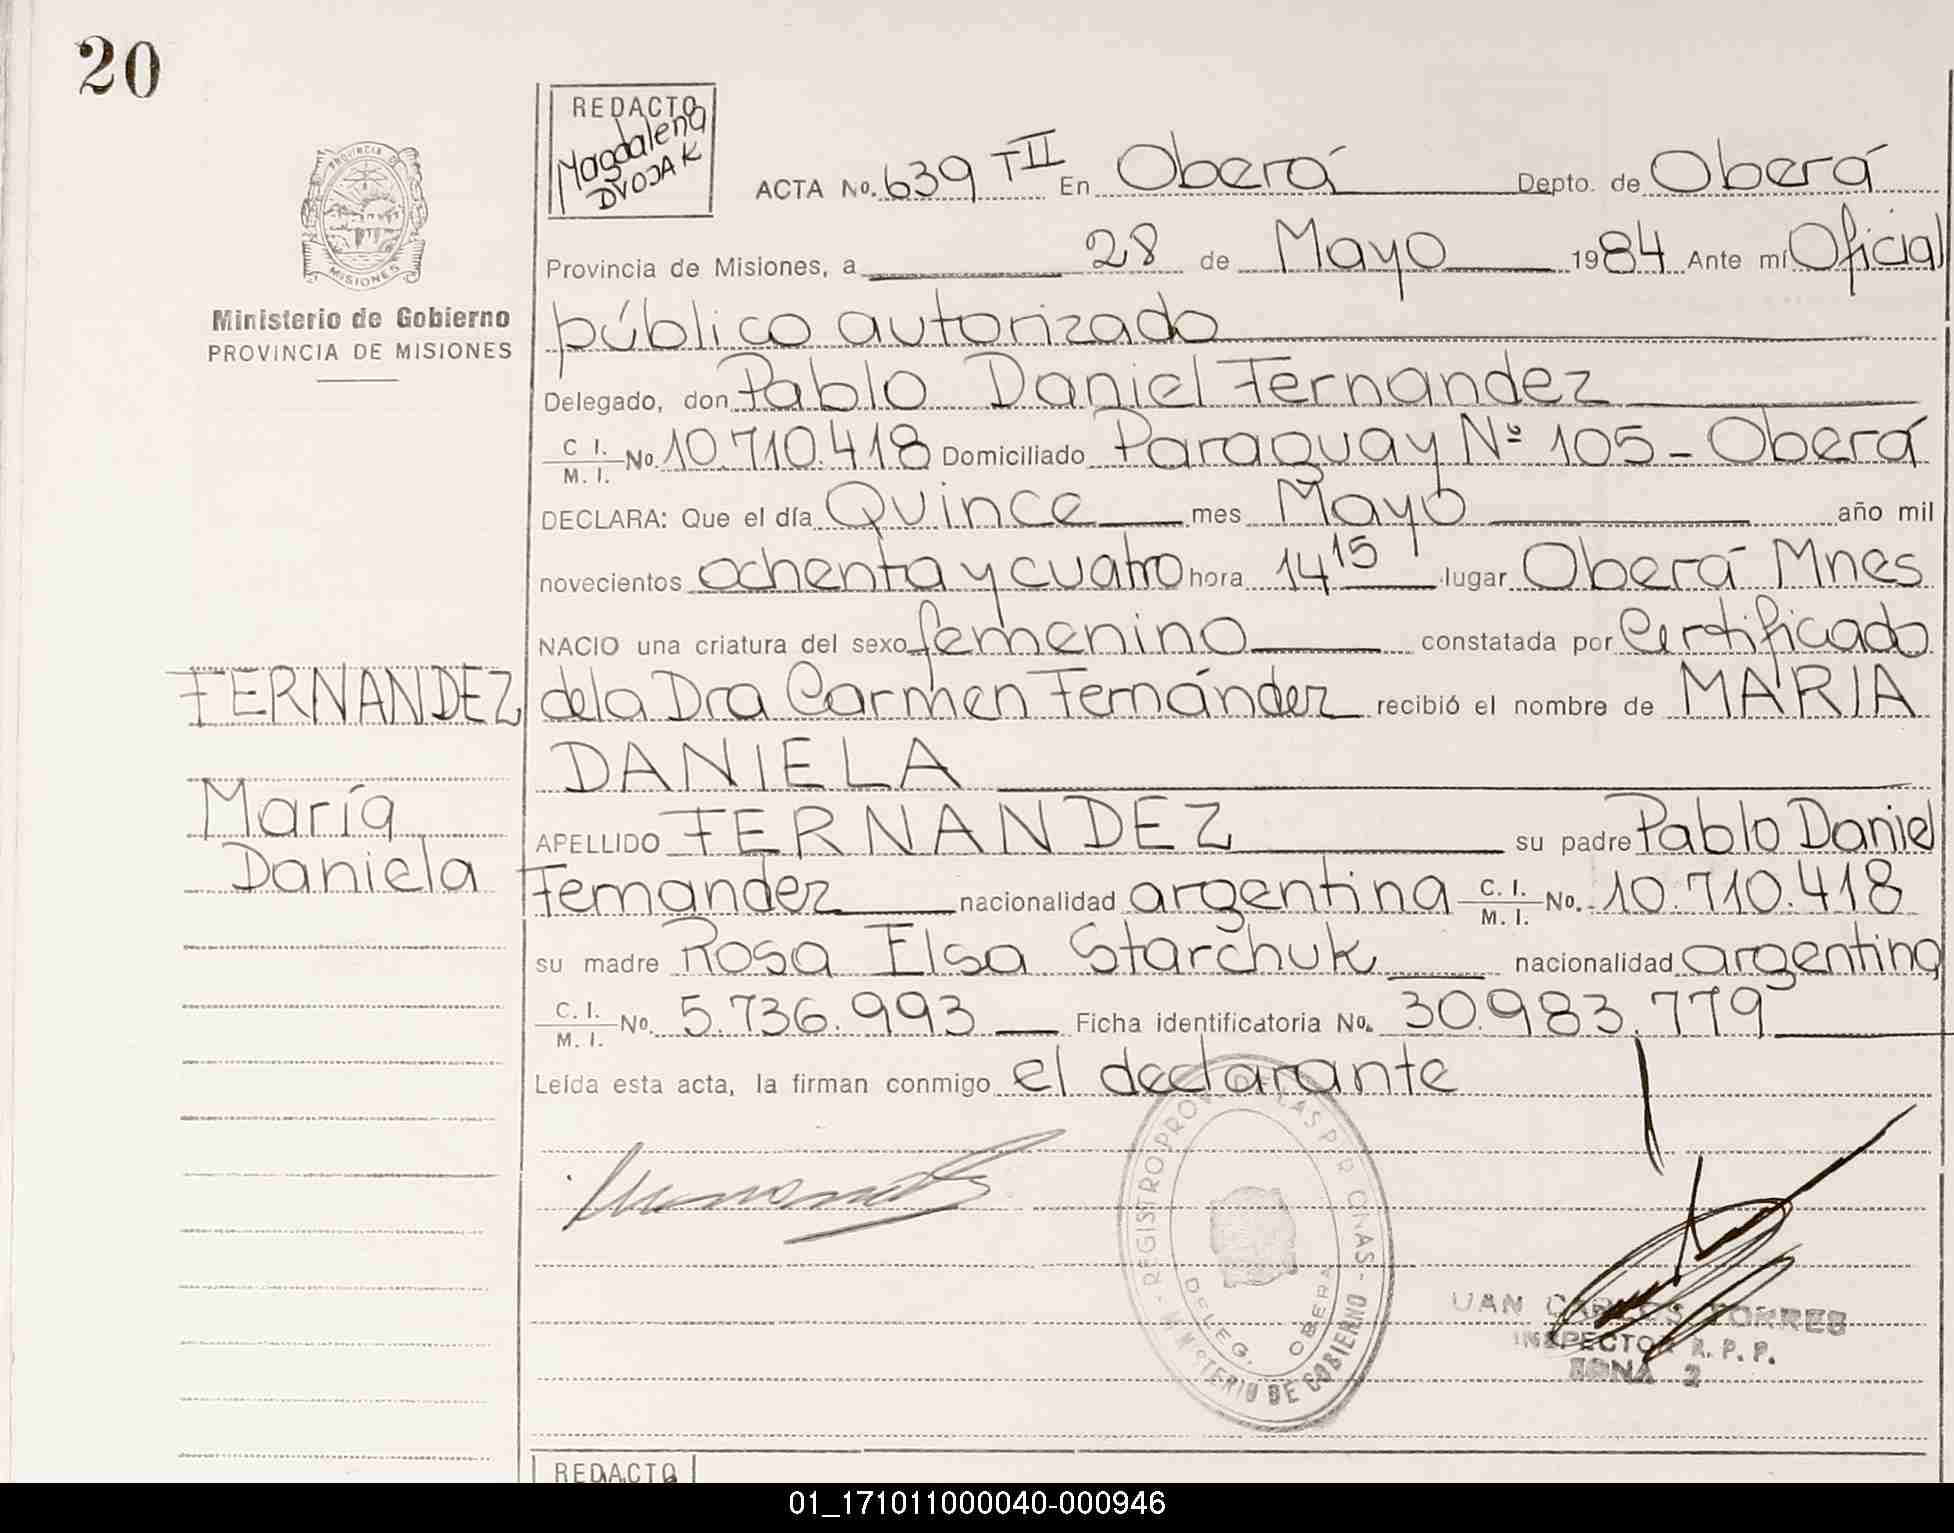 20
REDACTO
Magdalena
DVOJAK
ACTA No. 639 TII En Oberá Depto. de Oberá
Provincia de Misiones, a 28 de Mayo 1984 Ante mí Oficial
público autorizado
Delegado, don Pablo Daniel Fernandez
C. I. / M. I. No. 10.710.418 Domiciliado Paraguay Nº 105 - Oberá
DECLARA: Que el día Quince mes Mayo año mil
novecientos ochenta y cuatro hora 14 15 lugar Oberá Mnes
NACIO una criatura del sexo femenino constatada por Certificado
de la Dra Carmen Fernández recibió el nombre de MARIA
DANIELA
APELLIDO FERNANDEZ su padre Pablo Daniel
Fernandez nacionalidad argentina C. I. / M. I. No. 10.710.418
su madre Rosa Elsa Starchuk nacionalidad argentina
C. I. / M. I. No. 5.736.993 Ficha identificatoria No. 30.983.779
Leída esta acta, la firman conmigo el declarante
PROVINCIA DE
MISIONES
Ministerio de Gobierno
PROVINCIA DE MISIONES
FERNANDEZ
María
Daniela
REGISTRO PROV. DE LAS PERSONAS - MINISTERIO DE GOBIERNO
DELEG. OBERA
UAN CARLOS TORRES
INSPECTOR R. P. P.
ZONA 2
REDACTO
01_171011000040-000946